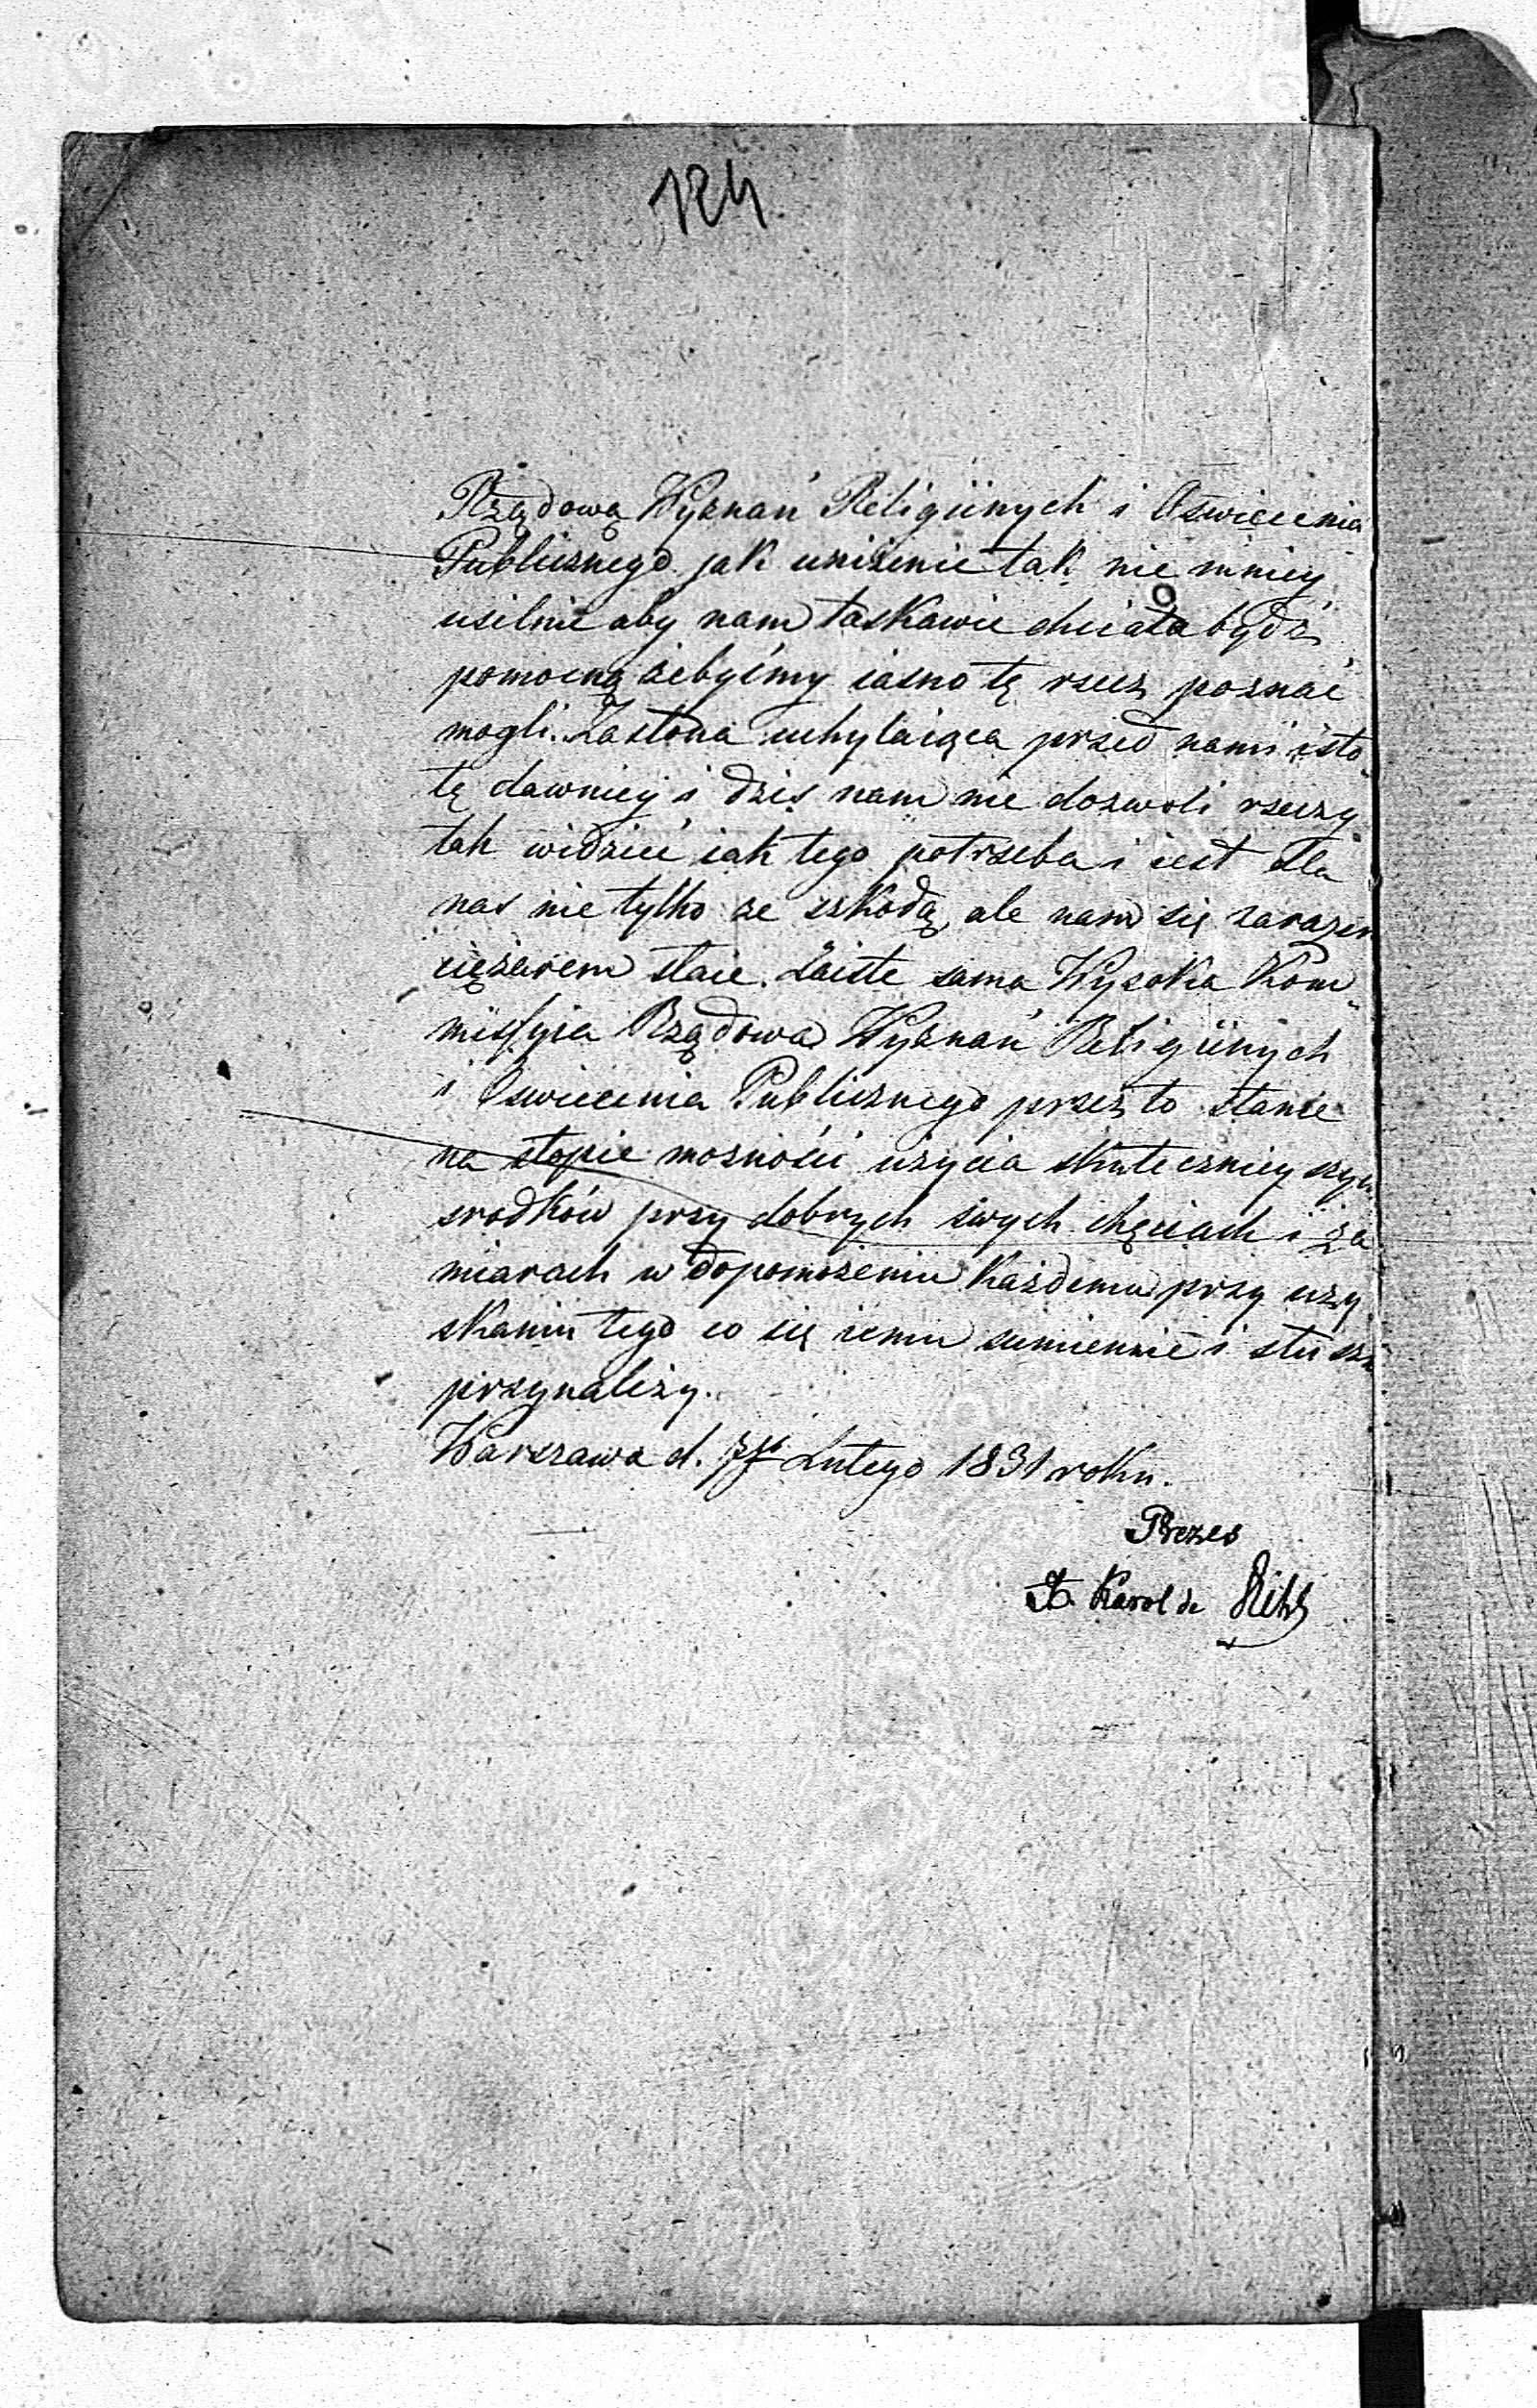 124
Rządową Wyznań Religiinych i Oswiecenia
Publicznego jak uniżenie tak nie mniey
usilnie aby nam łaskawie chciała bydź
pomocną żebyśmy iasno tę rzecz poznać
mogli. Zasłona uchylaiąca przed nami isto
tę dawniey i dziś nam nie dozwoli rzeczy
tak widzieć iak tego potrzeba i iest dla
nas nie tylko ze szkodą, ale nam się zarazem
ciężarem staie. Zaiste sama Wysoka Kom
missyia Rządowa Wyznań Religiinych
i Oswiecenia Publicznego przez to stanie
na stopie mozności użycia skuteczniey szych
srodków przy dobrych swych chęciach i za
miarach w dopomożeniu Każdemu przy uzy
skaniu tego co się iemu sumiennie i słuszn
przynależy.
Warszawa d. Lutego 1831 roku.
Prezes
Karol de